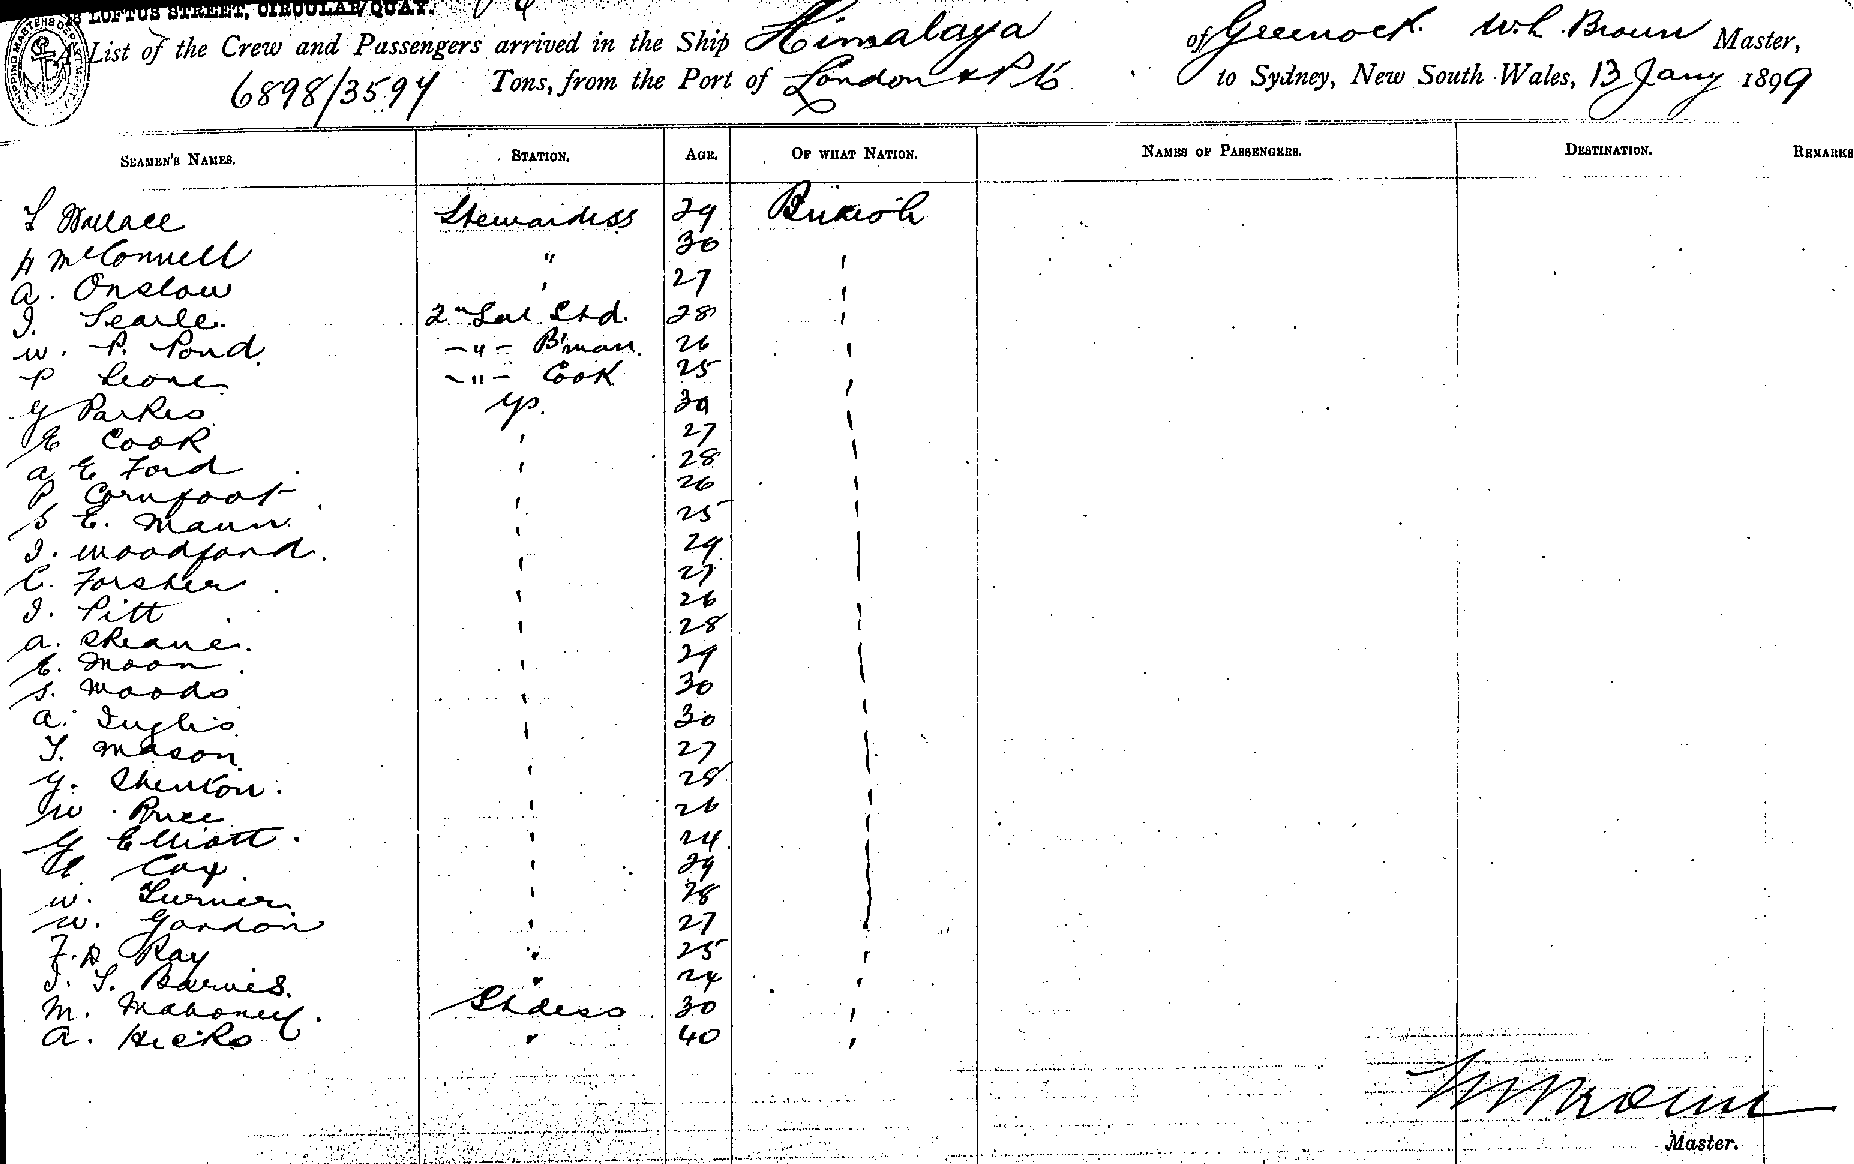 LOFTUS STREET, CIRCULAR QUAY.
List of the Crew and Passengers arrived in the Ship Himalaya of Greenock W. L. Broun Master,
6898/3594 Tons, from the Port of London & Pts to Sydney, New South Wales, 13 Jany 1899
SEAMEN'S NAMES. STATION. AGE. OF WHAT NATION. NAMES OF PASSENGERS. DESTINATION. REMARKS
Wallace Stewardess 29 British
H McConnell " 30 '
A. Onslow ' 27 '
J. Searle 2nd Sal Std. 28 '
W. P. Pond -"- B'man. 26 '
P Leone -"- Cook 25 '
G Parkes 30 '
E Cook ' 27 '
A E Ford ' 28 '
P. Cornfoot ' 26 '
S E. Mann ' 25 '
J. Woodford. ' 29 '
C. Forsher ' 27 '
J. Pitt ' 26 '
A. Skeane. ' 28 '
E. Moon ' 29 '
S. Woods ' 30 '
A. Inglis ' 30 '
T. Mason ' 27 '
G. Shenton. ' 28 '
W. Price ' 26 '
G Elliott. ' 24 '
Cox ' 29 '
W. Turner ' 28 '
W. Gordon ' 27 '
F. D. Ray " 25 '
J. T. Barnes. " 24 '
M. Mahoney. Stdess 30 '
A. Hicks " 40 '
W L Broun
Master.